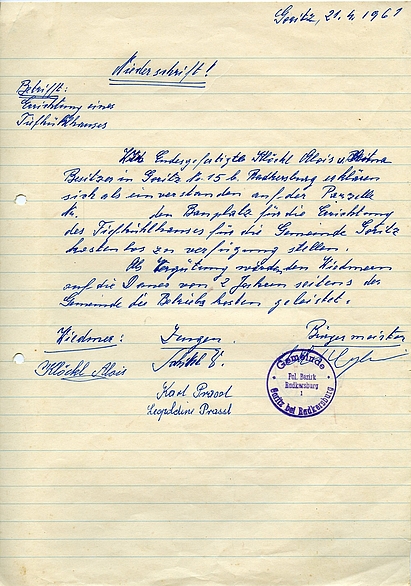 Goritz, 21.4.1961
Niederschrift!
Betrifft:
Errichtung eines
Tiefkühlhauses
Endesgefertigte Klöckl Alois u.
Besitzer in Goritz No 15 b. Radkersburg erklären
sich als einverstanden auf der Parzelle
Nr. den Bauplatz für die Errichtung
des Tiefkühlhauses für die Gemeinde Goritz
kostenlos zu verfügung stellen.
Als Vergütung werden den Wiedmern
auf die Dauer von 2 Jahren seitens der
Gemeinde die Betriebskosten geleistet.
Wiedmer: Zeugen. Bürgermeister
Klöckl Alois
Karl Prassl
Leopoldine Prassl
Gemeinde
Pol. Bezirk
Radkersburg
1
Goritz bei Radkersburg